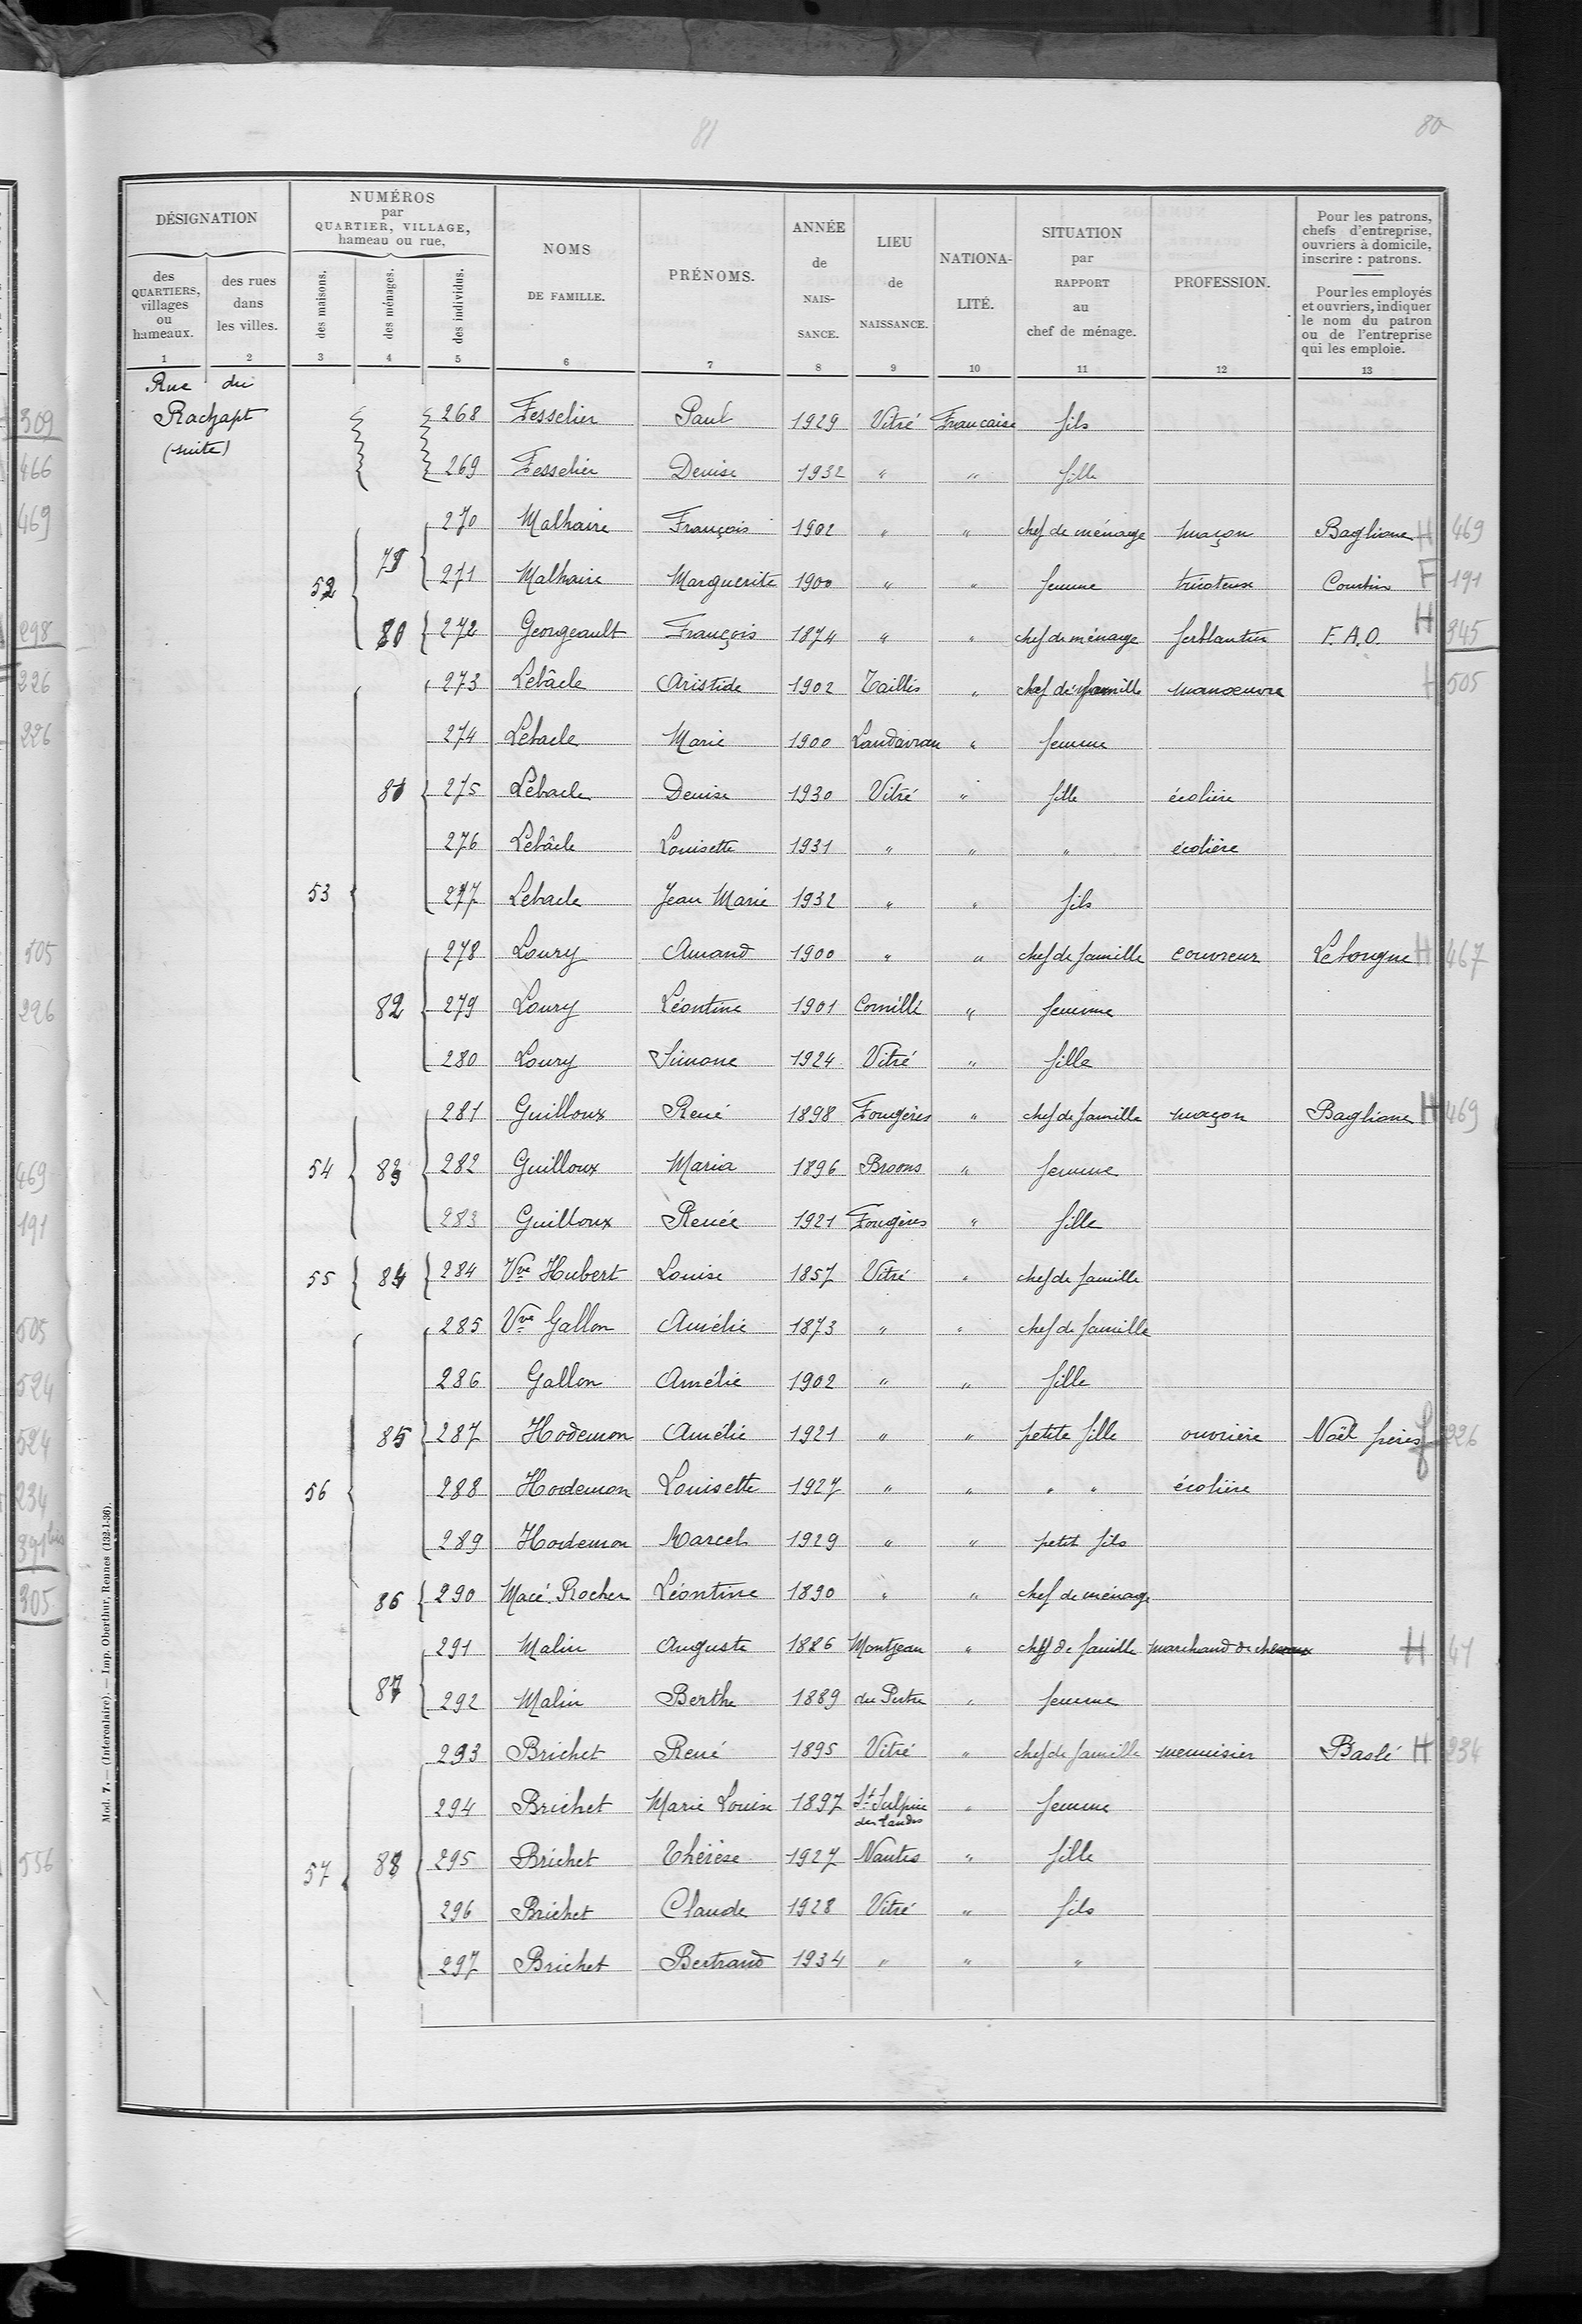 81
80
DÉSIGNATION
NUMÉROS
par
QUARTIER, VILLAGE,
hameau ou rue,
NOMS
DE FAMILLE.
PRÉNOMS.
ANNÉE
de
NAIS-
SANCE.
LIEU
de
NAISSANCE.
NATIONA-
LITÉ.
SITUATION
par
RAPPORT
au
chef de ménage.
PROFESSION.
Pour les patrons,
chefs d'entreprise,
ouvriers à domicile,
inscrire : patrons.
Pour les employés
et ouvriers, indiquer
le nom du patron
ou de l'entreprise
qui les emploie.
des
QUARTIERS,
villages
ou
hameaux.
des rues
dans
les villes.
des maisons.
des ménages.
des individus.
1 2 3 4 5 6 7 8 9 10 11 12 13
Rue du
Rachapt
(suite)
268 Fesselier Paul 1929 Vitré Française fils
269 Fesselier Denise 1932 " " fille
270 Malhaire François 1902 " " chef de ménage maçon Baglione H 469
52
271 Malhaire Marguerite 1900 " " femme tricoteuse Courtin F 191
80 272 Georgeault François 1874 " " chef de ménage ferblantier F.A.O. H 345
273 Lebâcle Aristide 1902 Taillis " chef de famille manoeuvre H 505
274 Lebacle Marie 1900 Landavran " femme
81 275 Lebacle Denise 1930 Vitré " fille écolière
276 Lebâcle Louisette 1931 " " " écolière
53 277 Lebacle Jean Marie 1932 " " fils
278 Loury Amand 1900 " " chef de famille couvreur H 467
82 279 Loury Léontine 1901 Cornillé " femme
280 Loury Simone 1924 Vitré " fille
281 Guilloux René 1898 Fougères " chef de famille maçon Baglione H 469
54 83 282 Guilloux Maria 1896 Broons " femme
283 Guilloux Renée 1921 Fougères " fille
55 84 284 Vve Hubert Louise 1857 Vitré " chef de famille
285 Vve Gallon Amélie 1873 " " chef de famille
286 Gallon Amélie 1902 " " fille
85 287 Hodemon Amélie 1921 " " petite fille ouvrière Noël frères f 226
56 288 Hodemon Louisette 1927 " " " " écolière
289 Hodemon Marcel 1929 " " petit fils
86 290 Macé Rocher Léontine 1890 " " chef de ménage
291 Malin Auguste 1886 Montjean " chef de famille marchand de chevaux H 41
87 292 Malin Berthe 1889 du Pertre " femme
293 Brichet René 1895 Vitré " chef de famille menuisier Baslé H 234
294 Brichet Marie Louise 1897 St Sulpice des Landes " femme
57 88 295 Brichet Thérèse 1927 Nantes " fille
296 Brichet Claude 1928 Vitré " fils
297 Brichet Bertrand 1934 " " "
Mod. 7. — (Intercalaire). — Imp. Oberthur, Rennes (132-1-36).
309
466
469
298
226
226
505
226
469
191
505
524
524
234
305
556